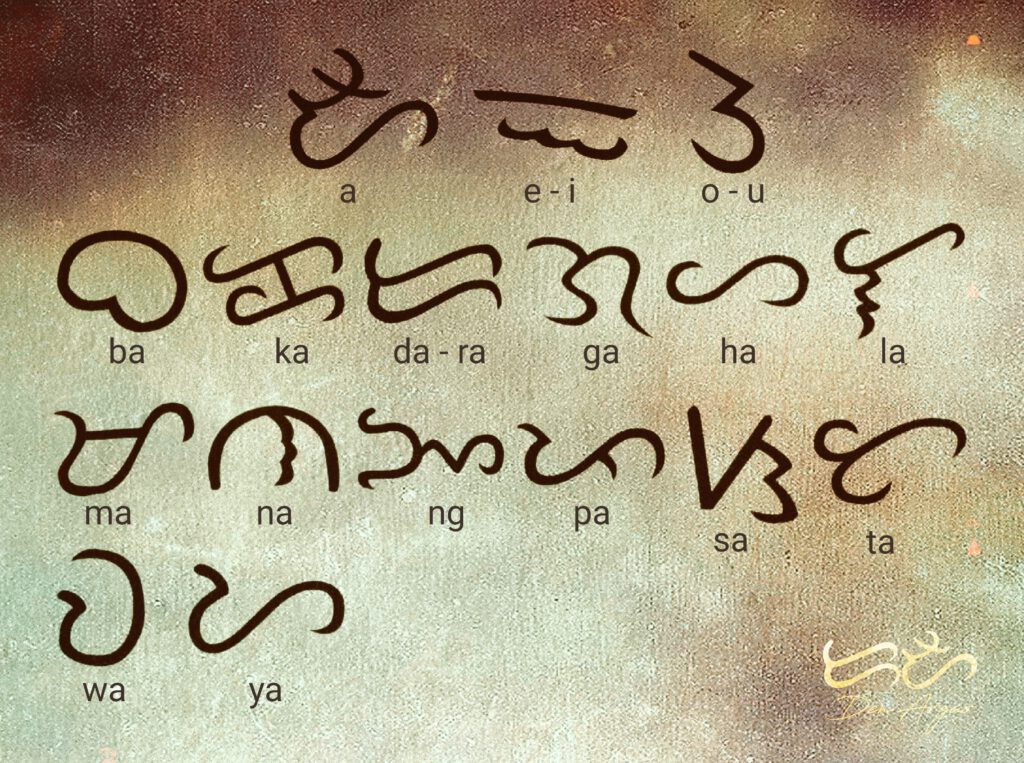 ᜀ ᜁ ᜂ
a e - i o - u
ᜊ ᜃ ᜇ ᜄ ᜑ ᜎ
ba ka da - ra ga ha la
ᜋ ᜈ ᜅ ᜉ ᜐ ᜆ
ma na ng pa sa ta
ᜏ ᜌ
wa ya